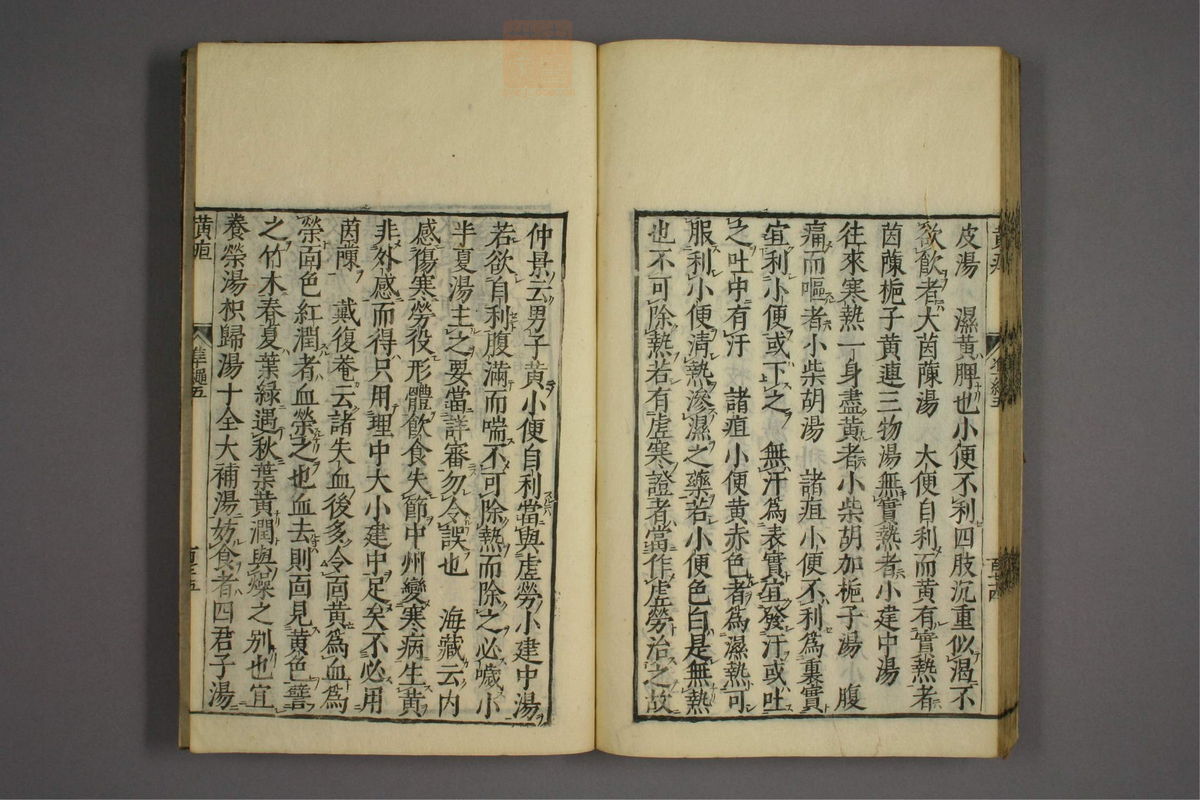 皮湯　濕黄脾也小便不利四肢沉重似渴不
欲飲者大茵蔯湯　大便自利而黄有實熱者
茵蔯梔子黄連三物湯無實熱者小建中湯
往來寒熱一身盡黄者小柴胡加梔子湯　腹
痛而嘔者小柴胡湯　諸疸小便不利為裏實
宜利小便或下之　無汗為表實宜發汗或吐
之吐中有汗　諸疸小便黄赤色者為濕熱可
服利小便清熱滲濕之藥若小便色白是無熱
也不可除熱若有虚寒證者當作虚勞治之故
仲景云男子黄小便自利當與虚勞小建中湯
若欲自利腹滿而喘不可除熱而除之必噦小
半夏湯主之要當詳審勿令誤也　海藏云内
感傷寒勞役形體飲食失節中州變寒病生黄
非外感而得只用理中大小建中足矣不必用
茵蔯　戴復菴云諸失血後多令面黄為血為
榮面色紅潤者血榮之也血去則面見黄色譬
之竹木春夏葉緑遇秋葉黄潤與燥之別也宜
養榮湯枳歸湯十全大補湯妨食者四君子湯
黄疸
準繩五
百三五